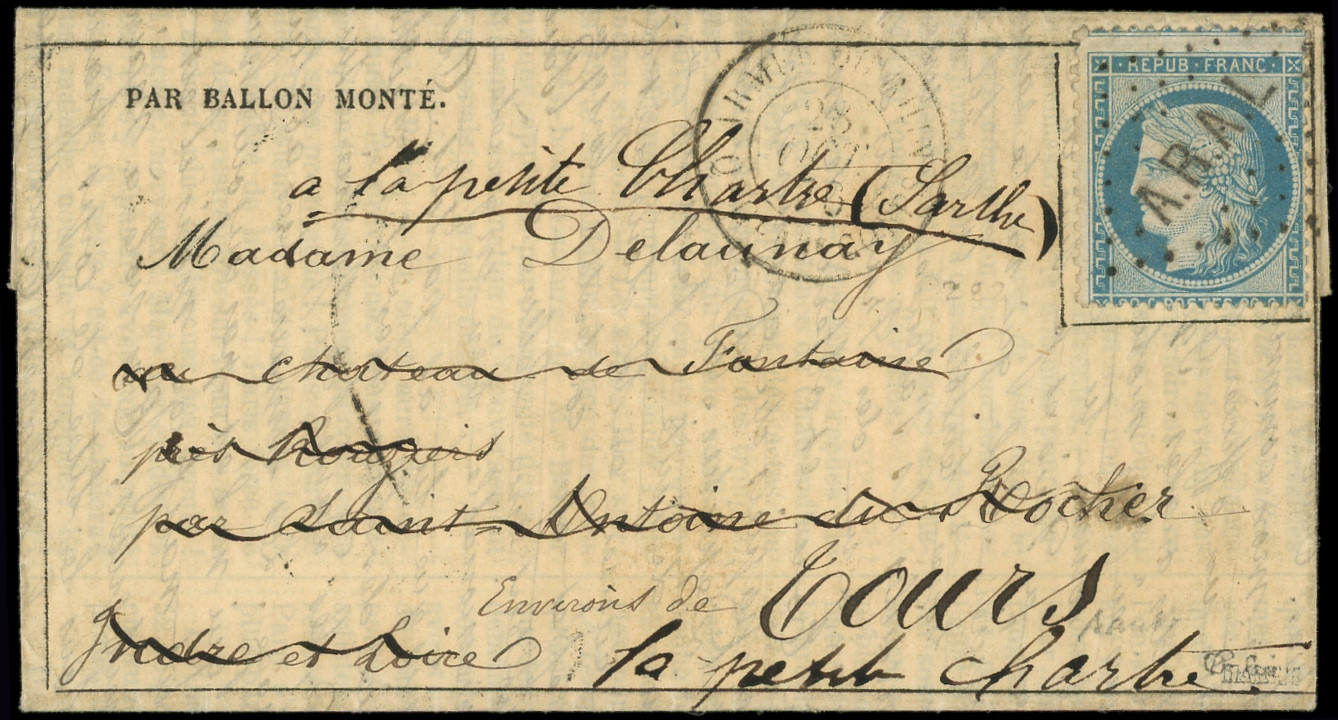 PAR BALLON MONTÉ.
REPUB FRANC
A.B.A.L
28
OCT
a la petite Chartre (Sarthe)
Madame Delaunay
au chateau de Fontaine
près Rouziers
par Saint-Antoine du Rocher
Environs de Tours
Indre et Loire
la petite Chartre